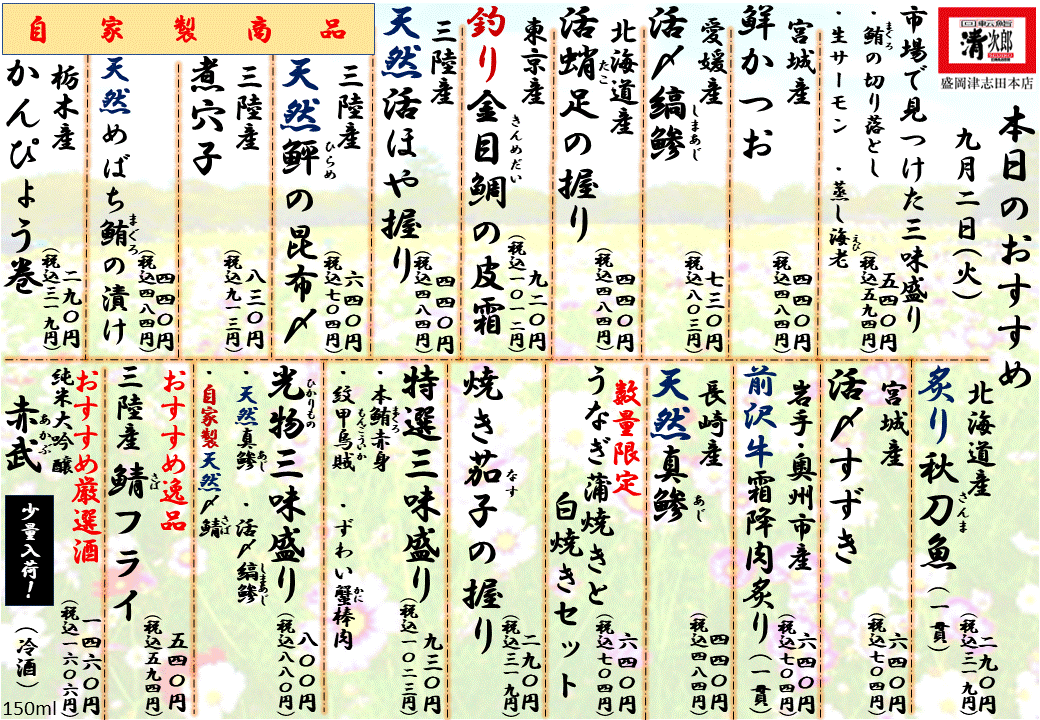 回転鮨
清次郎
盛岡津志田本店
本日のおすすめ
九月二日(火)
市場で見つけた三味盛り
・鮪の切り落とし
まぐろ
・生サーモン
・蒸し海老
えび
五四〇円
(税込五九四円)
宮城産
鮮かつお
四四〇円
(税込四八四円)
愛媛産
活〆縞鯵
しまあじ
七三〇円
(税込八〇三円)
北海道産
活蛸足の握り
たこ
四四〇円
(税込四八四円)
東京産
釣り金目鯛の皮霜
きんめだい
九二〇円
(税込一〇一二円)
三陸産
天然活ほや握り
四四〇円
(税込四八四円)
三陸産
天然鮃の昆布〆
ひらめ
六四〇円
(税込七〇四円)
三陸産
煮穴子
八三〇円
(税込九一三円)
自家製商品
天然めばち鮪の漬け
まぐろ
四四〇円
(税込四八四円)
栃木産
かんぴょう巻
二九〇円
(税込三一九円)
北海道産
炙り秋刀魚(一貫)
さんま
二九〇円
(税込三一九円)
宮城産
活〆すずき
六四〇円
(税込七〇四円)
岩手・奥州市産
前沢牛霜降肉炙り(一貫)
六四〇円
(税込七〇四円)
長崎産
天然真鯵
あじ
四四〇円
(税込四八四円)
数量限定
うなぎ蒲焼きと
白焼きセット
六四〇円
(税込七〇四円)
焼き茄子の握り
なす
二九〇円
(税込三一九円)
特選三味盛り
・本鮪赤身
まぐろ
・ずわい蟹棒肉
かに
・紋甲烏賊
もんこういか
九三〇円
(税込一〇二三円)
光物三味盛り
ひかりもの
・天然真鯵
あじ
・活〆縞鯵
しまあじ
・自家製天然〆鯖
さば
八〇〇円
(税込八八〇円)
おすすめ逸品
三陸産 鯖フライ
さば
五四〇円
(税込五九四円)
おすすめ厳選酒
純米大吟醸
赤武
あかぶ
少量入荷!
(冷酒)
一四六〇円
(税込一六〇六円)
150ml